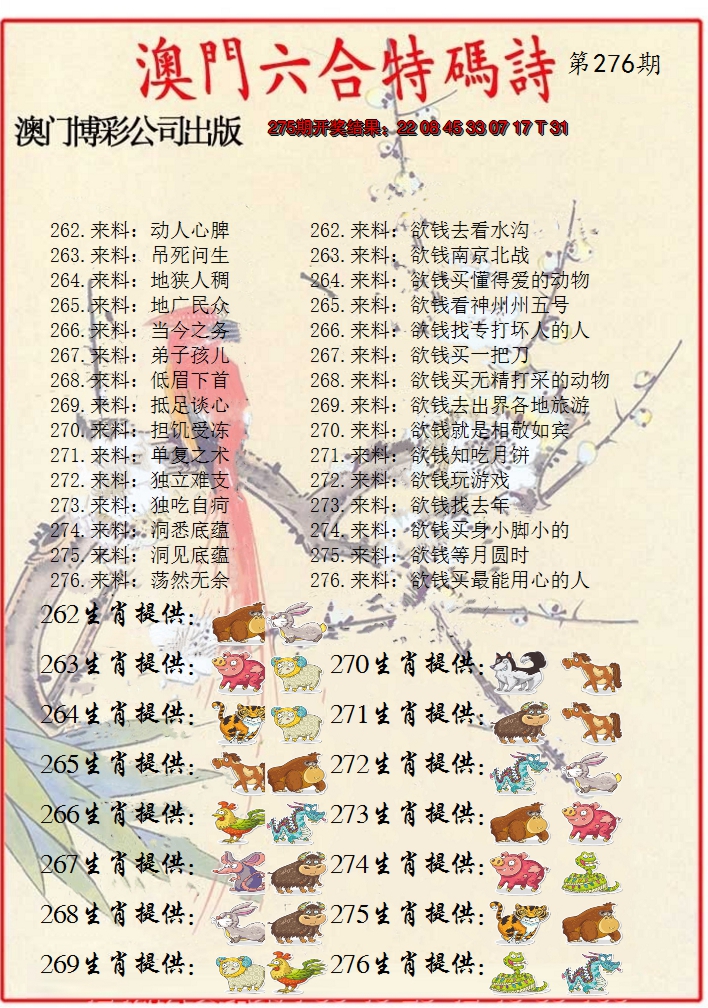 澳門六合特碼詩 第276期
澳门博彩公司出版 275期开奖结果：22 08 45 33 07 17 T 31
262.来料：动人心脾 262.来料：欲钱去看水沟
263.来料：吊死问生 263.来料：欲钱南京北战
264.来料：地狭人稠 264.来料：欲钱买懂得爱的动物
265.来料：地广民众 265.来料：欲钱看神州州五号
266.来料：当今之务 266.来料：欲钱找专打坏人的人
267.来料：弟子孩儿 267.来料：欲钱买一把刀
268.来料：低眉下首 268.来料：欲钱买无精打采的动物
269.来料：抵足谈心 269.来料：欲钱去出界各地旅游
270.来料：担饥受冻 270.来料：欲钱就是相敬如宾
271.来料：单复之术 271.来料：欲钱知吃月饼
272.来料：独立难支 272.来料：欲钱玩游戏
273.来料：独吃自疴 273.来料：欲钱找去年
274.来料：洞悉底蕴 274.来料：欲钱买身小脚小的
275.来料：洞见底蕴 275.来料：欲钱等月圆时
276.来料：荡然无余 276.来料：欲钱买最能用心的人
262生肖提供：
263生肖提供： 270生肖提供：
264生肖提供： 271生肖提供：
265生肖提供： 272生肖提供：
266生肖提供： 273生肖提供：
267生肖提供： 274生肖提供：
268生肖提供： 275生肖提供：
269生肖提供： 276生肖提供：